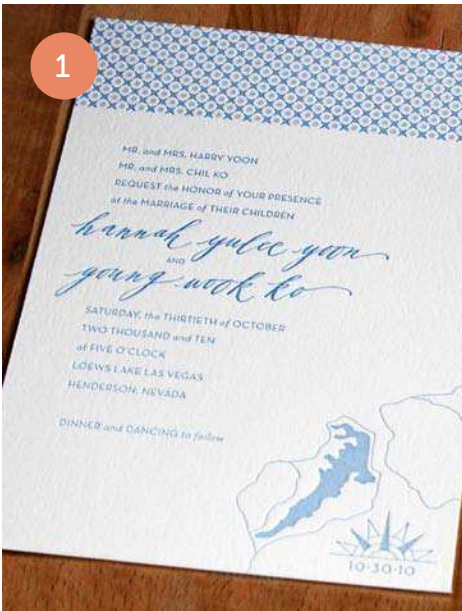 1
MR. and MRS. HARRY YOON
MR. and MRS. CHIL KO
REQUEST the HONOR of YOUR PRESENCE
at the MARRIAGE of THEIR CHILDREN
hannah yulee yoon
AND
young wook ko
SATURDAY, the THIRTIETH of OCTOBER
TWO THOUSAND and TEN
at FIVE O'CLOCK
LOEWS LAKE LAS VEGAS
HENDERSON, NEVADA
DINNER and DANCING to follow
10·30·10